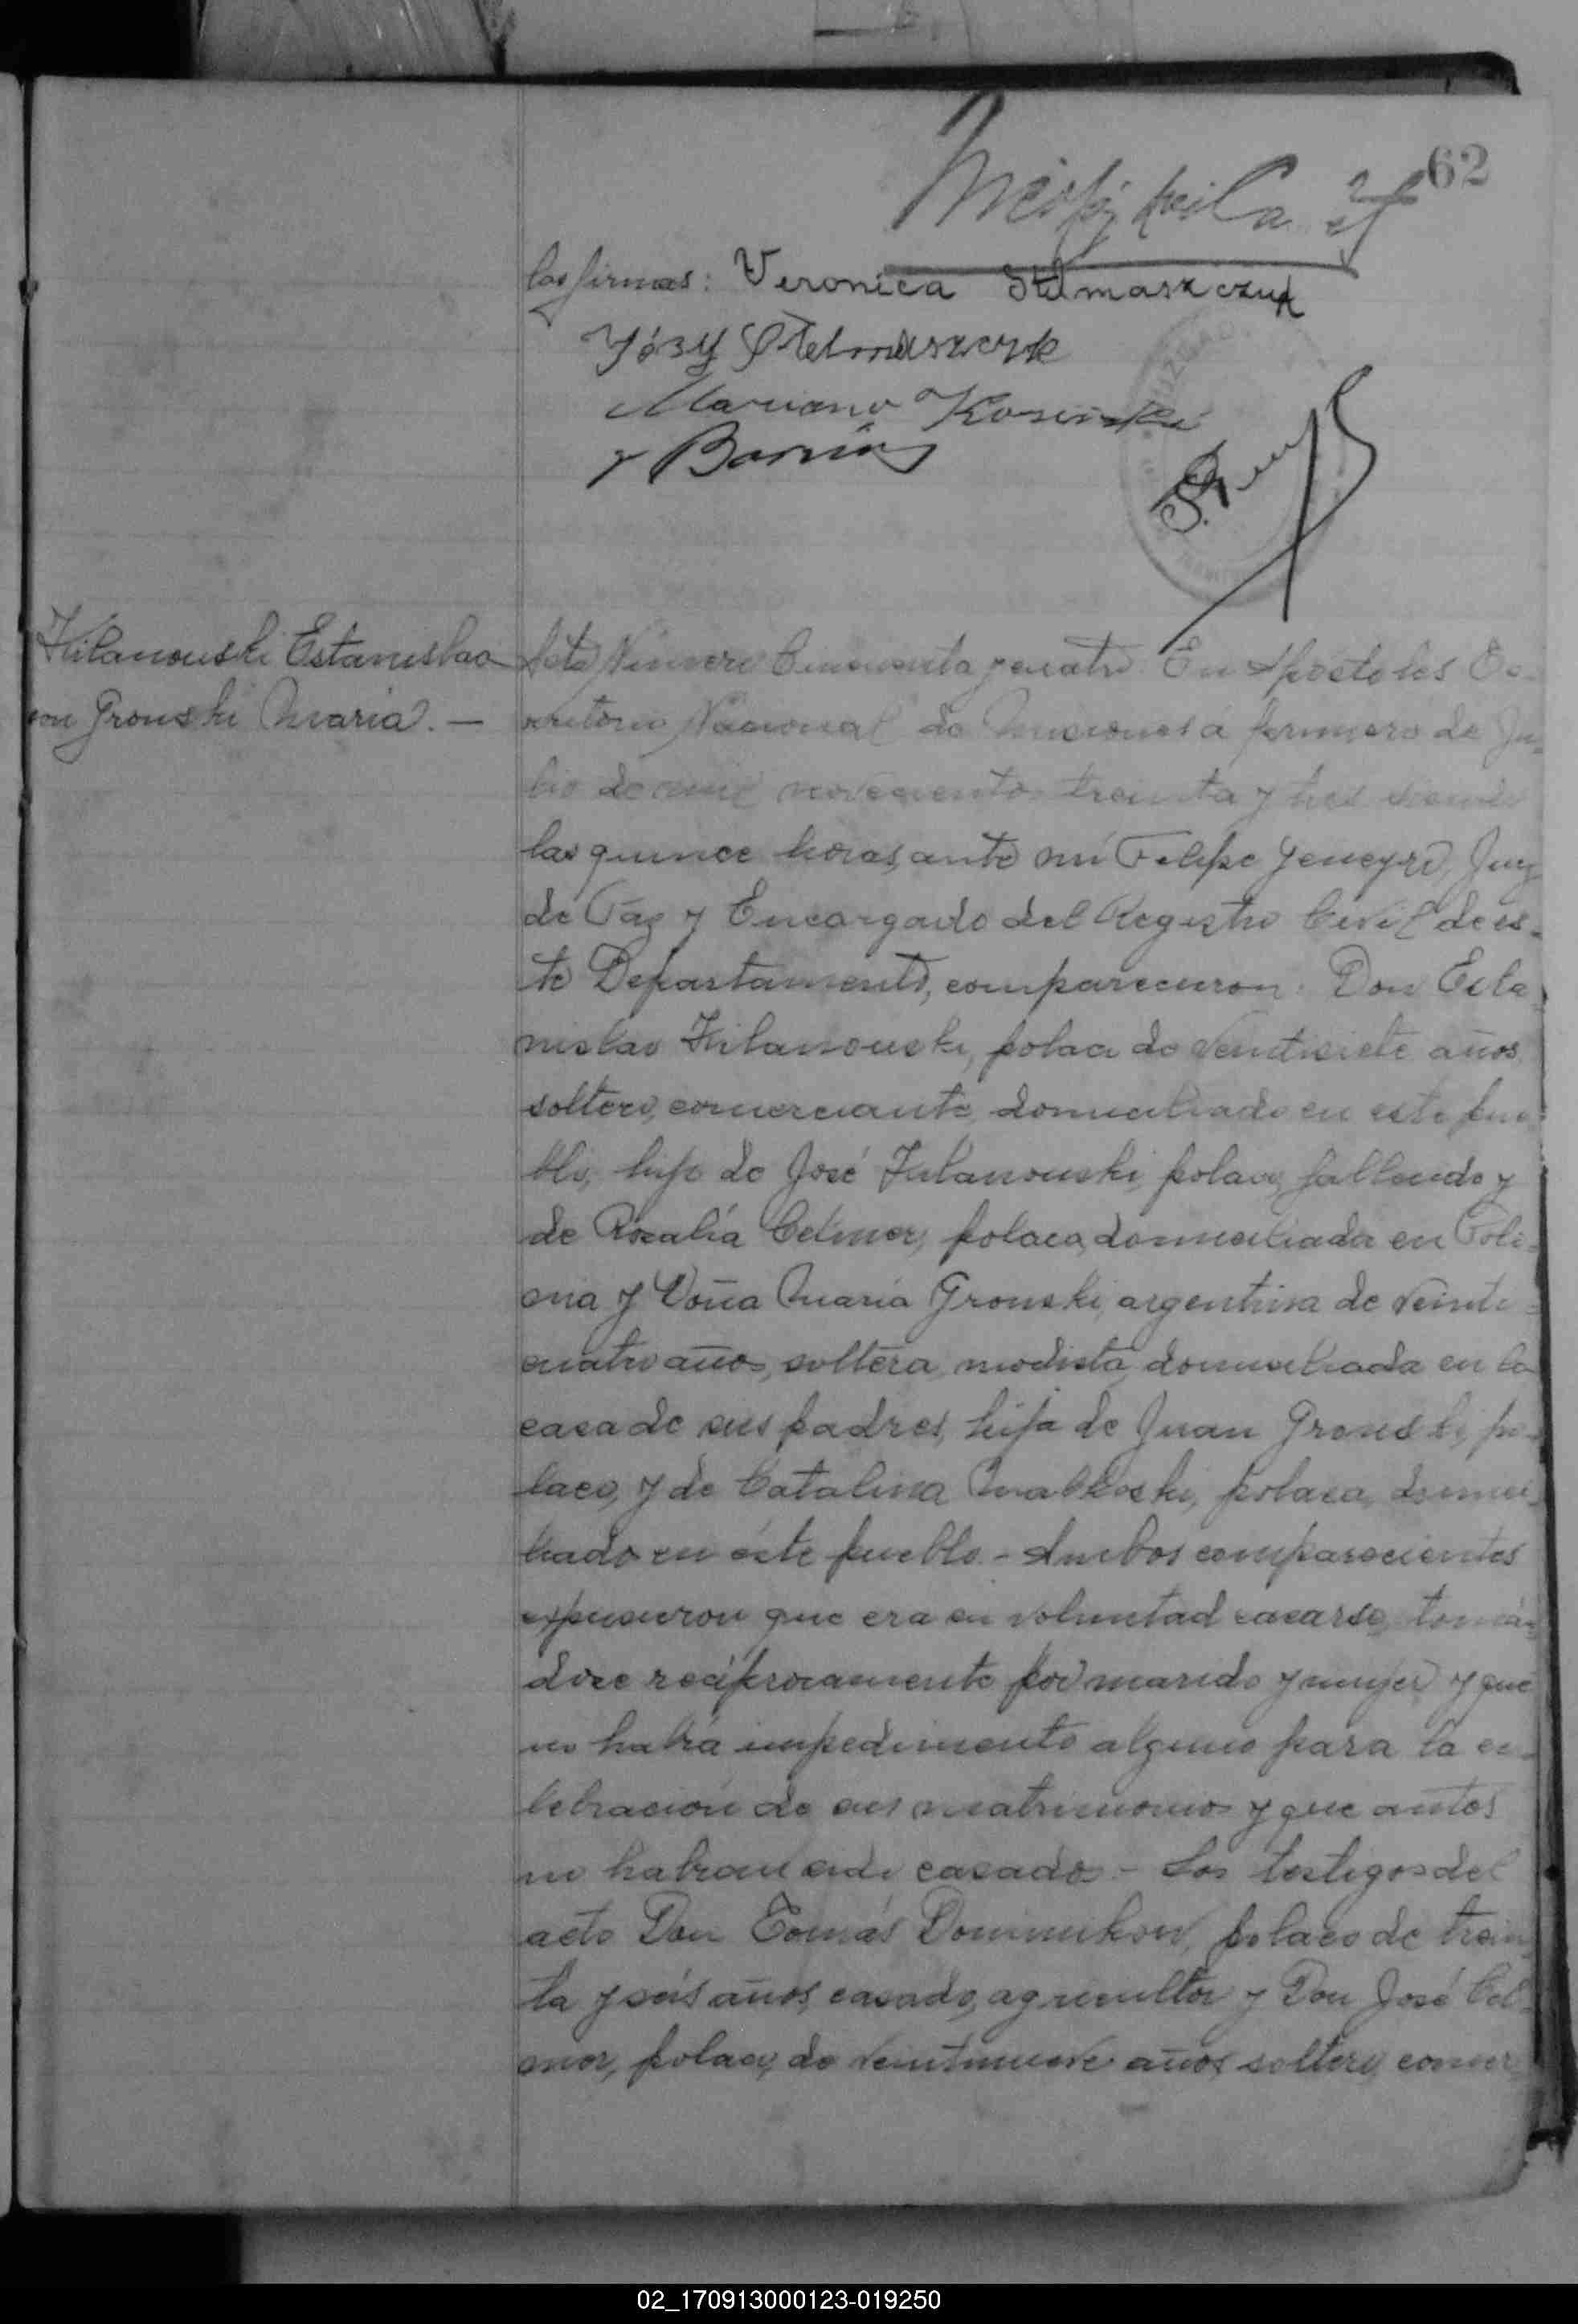 62
las firmas: Veronica Stelmaszczuk
Józef Stelmaszczyk
Mariano Kosinski
Kilanouski Estanislao
con Gronski Maria. —
Acta Número Cincuenta y cuatro. En Apóstoles Te-
rritorio Nacional de Misiones á primero de Ju-
lio de mil novecientos treinta y tres siendo
las quince horas, ante mí Felipe Jeneyro, Juez
de Paz y Encargado del Registro Civil de es-
te Departamento, comparecieron: Don Esta
nislao Kilanouski, polaco de veintisiete años
soltero, comerciante, domiciliado en este pue
blo, hijo de José Kilanouski, polaco, fallecido y
de Rosalía Celmer, polaca, domiciliada en Polo-
nia y Doña María Gronski, argentina de veinti-
cuatro años, soltera, modista, domiciliada en la
casa de sus padres, hija de Juan Gronski, po-
laco, y de Catalina polaca, domici-
liado en éste pueblo.- Ambos comparecientes
expusieron que era su voluntad casarse, tomán-
dose recíprocamente por marido y mujer y que
no había impedimento alguno para la ce-
lebración de su matrimonio y que antes
no habían sido casados.- Los testigos del
acto Don Tomás Dominikow, polaco de trein
ta y seis años, casado, agricultor y Don José Cel-
mer, polaco, de veintinueve años, soltero, comer
02_170913000123-019250